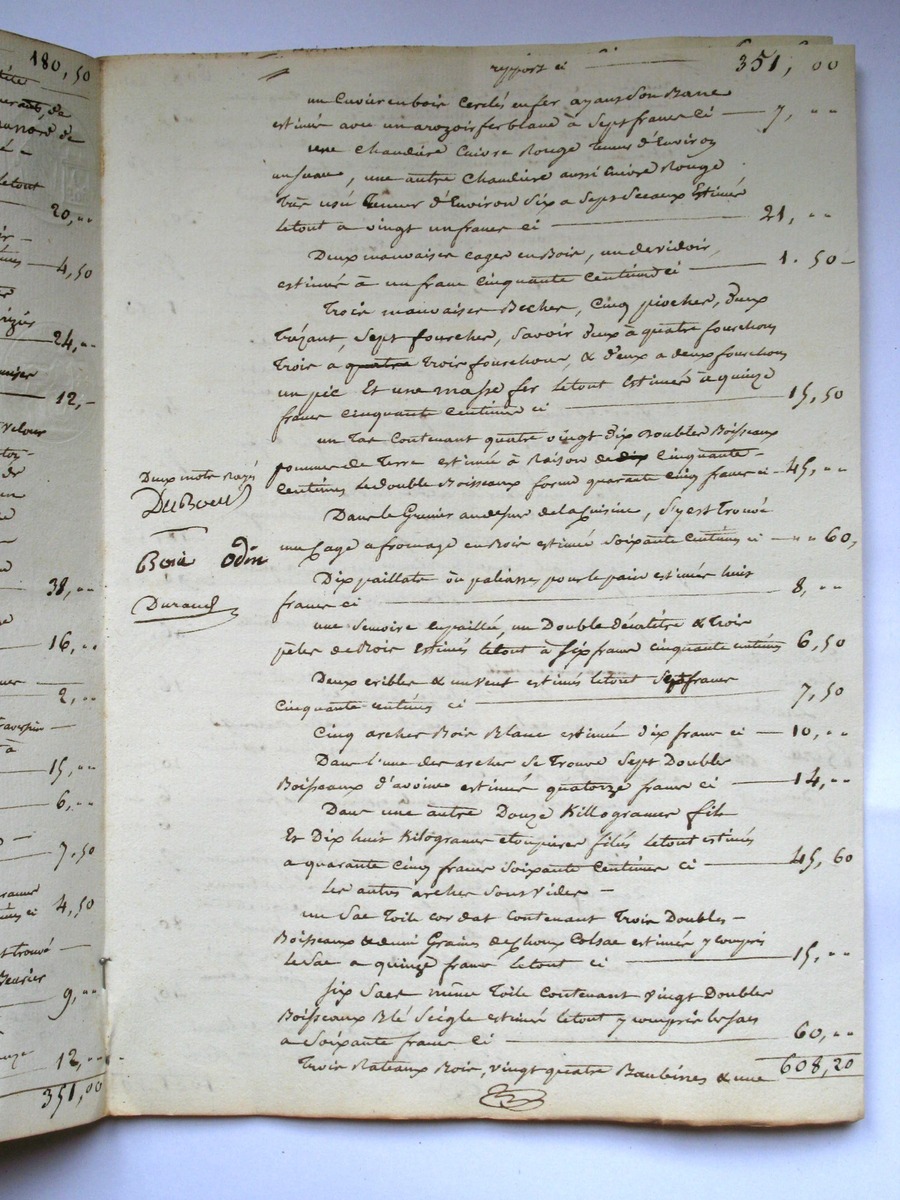 180,50
20,..
4,50
24,..
12,-
38,..
16,..
2,..
15,..
6,..
7,50
4,50
9,..
12,..
351,00
rapport ci 351, 00
un Cuvier en bois Cerclés en fer ayant Son Banc
estimé avec un arozoir fer blanc à Sept francs Ci — 7, ..
une Chaudiére Cuivre Rouge Tenant d'Environ
un Seau, une autre Chaudiere aussi Cuivre Rouge
Très usé Tenant d'Environ Six a Sept Seaux Estimé
le tout a vingt un francs ci — 21, ..
Deux mauvaises cages en Bois, un devidoir,
estimés à un franc Cinquante Centimes ci — 1. 50 -
Trois mauvaises Beches, Cinq pioches, deux
Trézans, Sept fourches, Savoir deux à quatre fourchons
Trois a quatre Trois fourchons, & deux a deux fourchons
un pic Et une masse fer le tout Estimés à quinze
francs Cinquante Centimes ci — 15,50
un Tas Contenant quatre vingt dix Doubles Boisseaux
pommes de Terre estimée à Raison de dix Cinquante
Centimes le double Boisseaux forme quarante Cinq francs ci - 45, ..
Deux mots Rayés
DuBoeuf
Boié Odin
Durand
Dans le Grenier au dessus de la Cuisine, S'y est Trouvé
une Cage a fromage en Bois estimé Soixante Centimes ci — .. 60,
Dix paillats ou paliasses pour le pain estimés huit
francs ci — 8, ..
une Semoire en paille, un Double décalitre & Trois
pèles de Bois Estimés le tout à Six francs cinquante centimes 6,50
Deux cribles & un Vent estimés le tout Sept francs
Cinquante centimes ci — 7,50
Cinq arches Bois Blanc estimée dix francs ci — 10, ..
Dans l'une des arches Se Trouve Sept Doubles
Boisseaux d'avoine estimés quatorze francs ci — 14, ..
Dans une autre Douze Killogrames fils
Et Dix huit Kilogrames étoupieres filés le tout estimés
a quarante Cinq francs Soixante Centimes ci — 45, 60
les autres arches Sont Vides —
un Sac Toile cordat Contenant Trois Doubles —
Boisseaux & demi Graines de Choux Colsac estimés y compris
le Sac a quinze francs le tout ci — 15, ..
Six Sacs même Toile Contenant Vingt Doubles
Boisseaux Blé Seigle estimé le tout y compris les Sacs
a Soixante francs Ci — 60, ..
Trois Rateaux Bois, vingt quatre & une 608,20